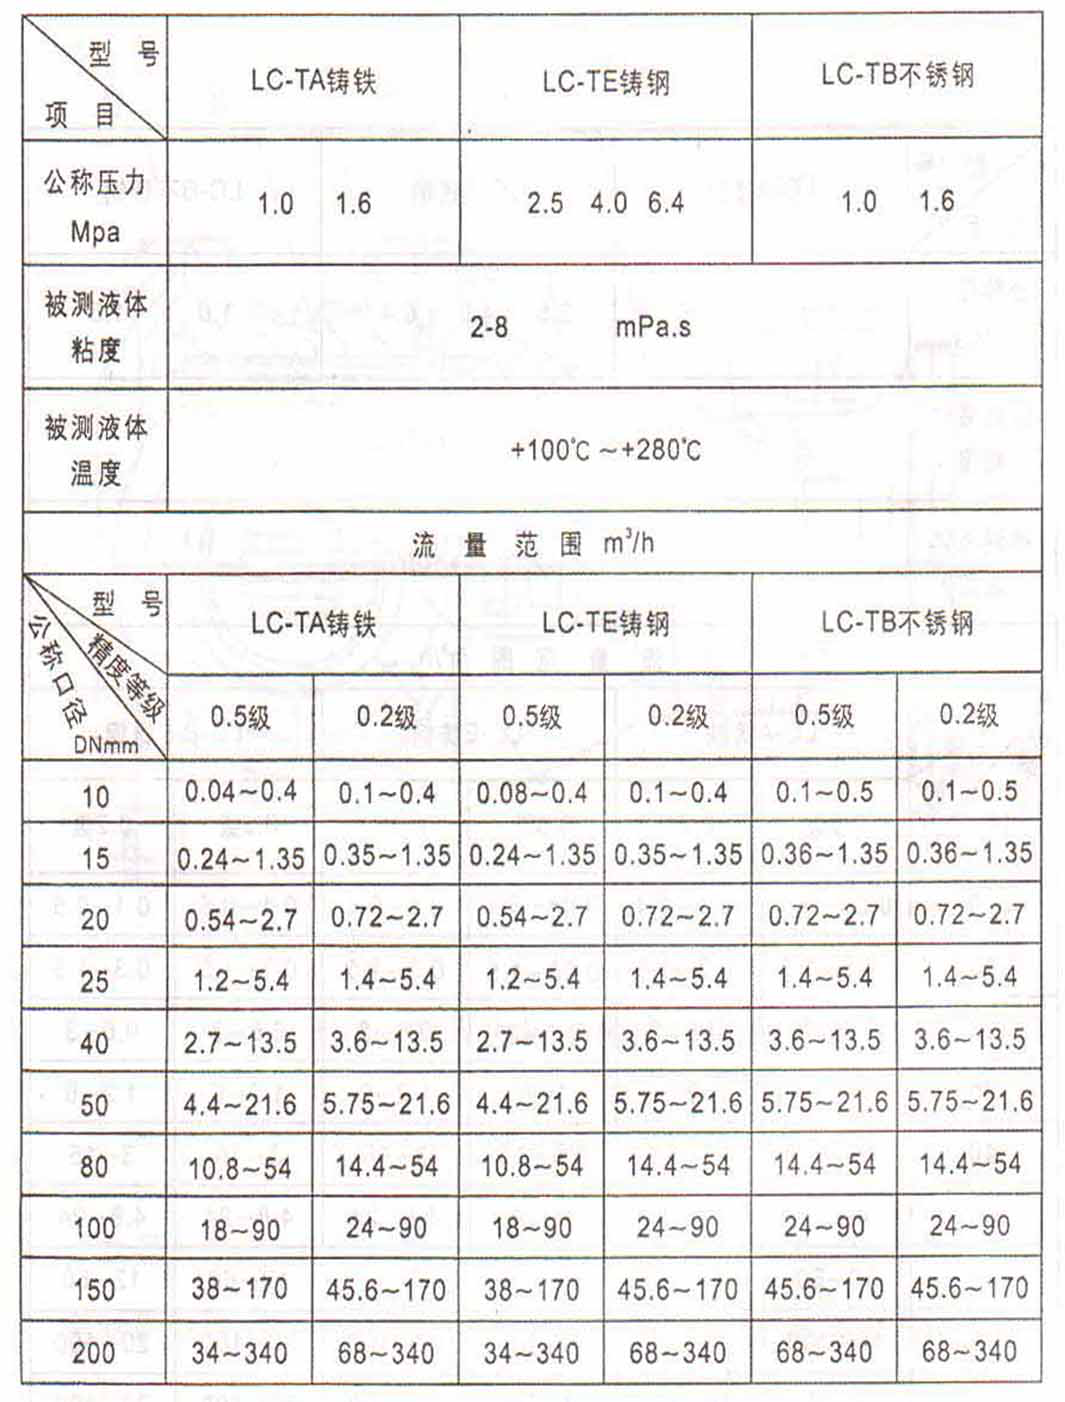 型 号
项 目
LC-TA铸铁 LC-TE铸钢 LC-TB不锈钢
公称压力
Mpa
1.0 1.6 2.5 4.0 6.4 1.0 1.6
被测液体
粘度
2-8 mPa.s
被测液体
温度
+100℃～+280℃
流 量 范 围 m³/h
型 号
精度等级
公称口径
DNmm
LC-TA铸铁 LC-TE铸钢 LC-TB不锈钢
0.5级 0.2级 0.5级 0.2级 0.5级 0.2级
10 0.04～0.4 0.1～0.4 0.08～0.4 0.1～0.4 0.1～0.5 0.1～0.5
15 0.24～1.35 0.35～1.35 0.24～1.35 0.35～1.35 0.36～1.35 0.36～1.35
20 0.54～2.7 0.72～2.7 0.54～2.7 0.72～2.7 0.72～2.7 0.72～2.7
25 1.2～5.4 1.4～5.4 1.2～5.4 1.4～5.4 1.4～5.4 1.4～5.4
40 2.7～13.5 3.6～13.5 2.7～13.5 3.6～13.5 3.6～13.5 3.6～13.5
50 4.4～21.6 5.75～21.6 4.4～21.6 5.75～21.6 5.75～21.6 5.75～21.6
80 10.8～54 14.4～54 10.8～54 14.4～54 14.4～54 14.4～54
100 18～90 24～90 18～90 24～90 24～90 24～90
150 38～170 45.6～170 38～170 45.6～170 45.6～170 45.6～170
200 34～340 68～340 34～340 68～340 68～340 68～340